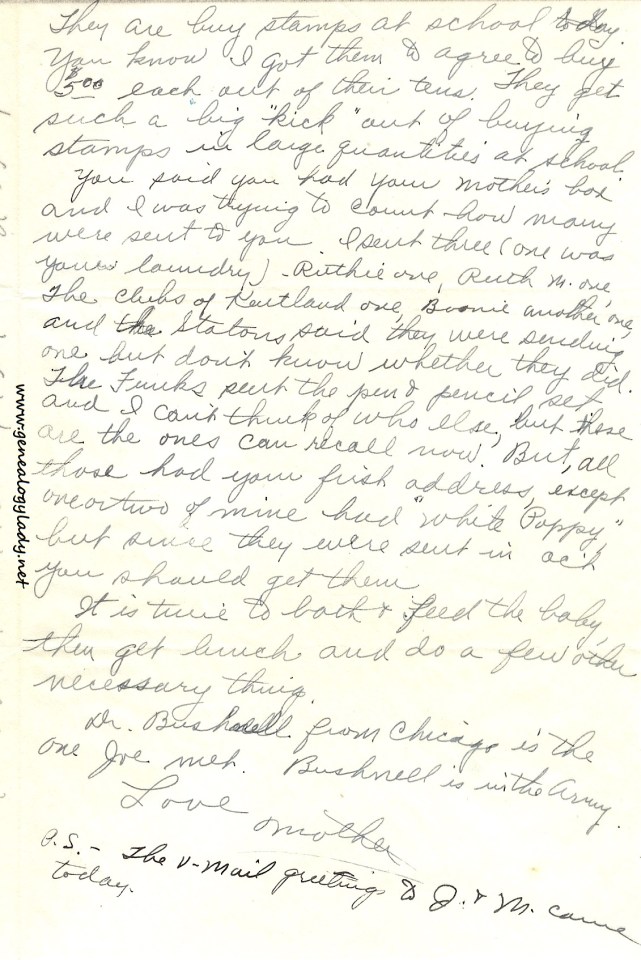 They are buy stamps at school today.
You know I got them to agree to buy
$5.00 each out of their tens. They get
such a big "kick" out of buying
stamps in large quantities at school.
You said you had your mother's box
and I was trying to count how many
were sent to you. I sent three (one was
your laundry) - Ruthie one, Ruth M. one,
The clubs of Kentland one, Boonie another one,
and the Statons said they were sending
one but don't know whether they did.
The Funks sent the pen & pencil set
and I can't think of who else, but these
are the ones can recall now. But, all
those had your first address, except
one or two of mine had "White Poppy"
but since they were sent in oct
you should get them
It is time to bath & feed the baby,
then get lunch and do a few other
necessary thing.
Dr. Bushnell from Chicago is the
one Joe met. Bushnell is in the Army.
Love
Mother
P.S. - The V-Mail greetings to J. & M. came
today.
www.genealogylady.net